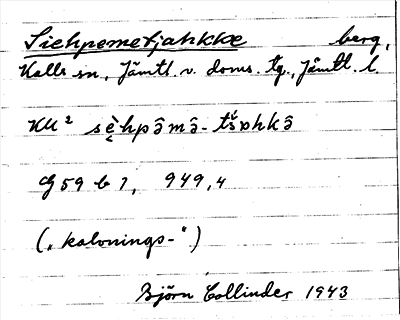 Siehpemetjahkke berg,
Kalls sn, Jämtl. v. doms. tg., Jämtl. l.
KK² sḙ̀hpâmâ-tš́ɒhkâ
G 59 b 1, 949,4
(„kalvnings-“)
Björn Collinder 1943